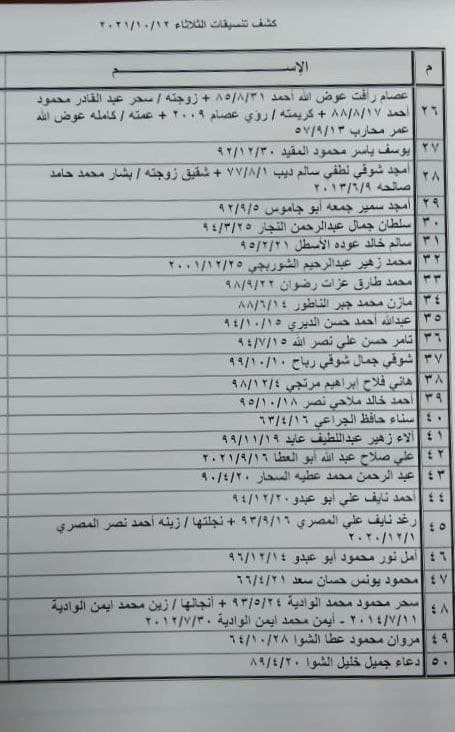 كشف تنسيقات الثلاثاء ٢٠٢١/١٠/١٢
م الإســـــــــم
٢٦ عصام رأفت عوض الله أحمد ٨٥/٨/٣١ + زوجته / سحر عبد القادر محمود
أحمد ٨٨/٨/١٧ + كريمته / رؤي عصام ٢٠٠٩ + عمته / كامله عوض الله
عمر محارب ٥٧/٩/١٣
٢٧ يوسف ياسر محمود المقيد ٩٢/١٢/٣٠
٢٨ أمجد شوقي لطفي سالم ديب ٧٧/٨/١ + شقيق زوجته / بشار محمد حامد
صالحه ٢٠١٣/٦/٩
٢٩ أمجد سمير جمعه أبو جاموس ٩٢/٩/٥
٣٠ سلطان جمال عبدالرحمن النجار ٩٤/٣/٢٥
٣١ سالم خالد عوده الأسطل ٩٥/٢/٢١
٣٢ محمد زهير عبدالرحيم الشوربجي ٢٠٠١/١٢/٢٥
٣٣ محمد طارق عزات رضوان ٩٨/٩/٢٢
٣٤ مازن محمد جبر الناطور ٨٨/٦/١٤
٣٥ عبدالله أحمد حسن الديري ٩٤/١٠/١٥
٣٦ تامر حسن علي نصر الله ٩٤/٧/١٥
٣٧ شوقي جمال شوقي رباح ٩٩/١٠/١٠
٣٨ هاني فلاح إبراهيم مرتجي ٩٨/١٢/٤
٣٩ أحمد خالد ملاحي نصر ٩٥/١٠/١٨
٤٠ سناء حافظ الجراعي ٦٣/٤/١٦
٤١ ألاء زهير عبداللطيف عابد ٩٩/١١/١٩
٤٢ علي صلاح عبد الله أبو العطا ٢٠٢١/٩/١٦
٤٣ عبد الرحمن محمد عطيه السحار ٩٠/٤/٢٠
٤٤ أحمد نايف علي أبو عبدو ٩٤/١٢/٢٠
٤٥ رغد نايف علي المصري ٩٣/٩/١٦ + نجلتها / زينه أحمد نصر المصري
٢٠٢٠/١٢/١
٤٦ أمل نور محمود أبو عبدو ٩٦/١٢/١٤
٤٧ محمود يونس حسان سعد ٦٦/٤/٢١
٤٨ سحر محمود محمد الوادية ٩٣/٥/٢٤ + أنجالها / زين محمد ايمن الوادية
٢٠١٤/٧/١١ - أيمن محمد ايمن الوادية ٢٠١٢/٧/٣٠
٤٩ مروان محمود عطا الشوا ٦٤/١٠/٢٨
٥٠ دعاء جميل خليل الشوا ٨٩/٤/٢٠